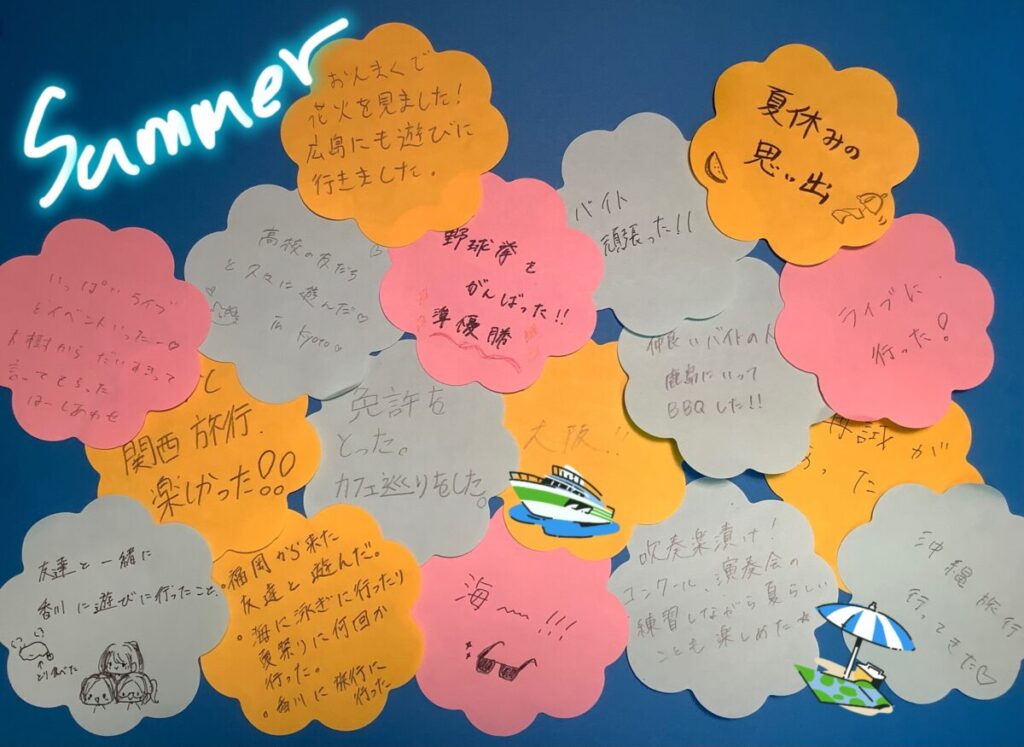 Summer
おんまくで
花火を見ました！
広島にも遊びに
行きました。
夏休みの
思い出
バイト
頑張った!!
高校の友だち
と久々に遊んだ♡
広 Kyoto。
野球拳を
がんばった!!
準優勝
いっぱいライブ
とイベントいったー♡
大樹からだいすきって
言ってもらった
はーしあわせ
ライブに
行った！
仲良いバイトの人
鹿島にいって
BBQした!!
関西旅行
楽しかった!!
免許を
とった。
カフェ巡りをした。
大阪!!
が
った
友達と一緒に
香川に遊びに行ったこと。
とり食べた
福岡から来た
友達と遊んだ。
。海に泳ぎに行ったり
夏祭りに何回か
行った。
。香川に旅行に
行った
海〜!!!
吹奏楽漬け！
コンクール、演奏会の
練習しながら夏らしい
ことも楽しめた☆
沖縄旅行
行ってきた♡